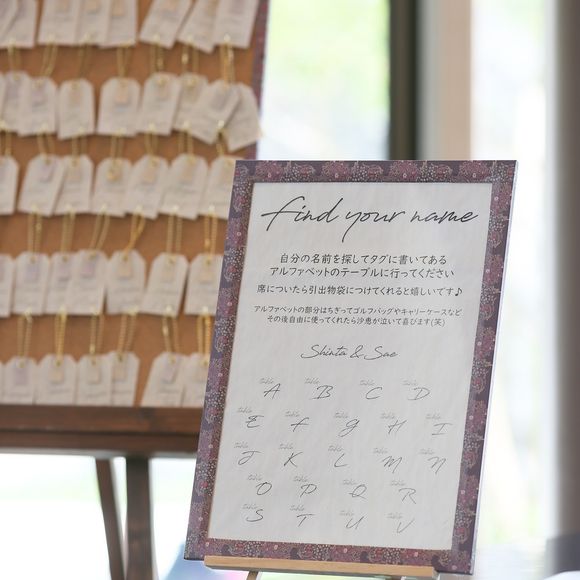 find your name
自分の名前を探してタグに書いてある
アルファベットのテーブルに行ってください
席についたら引出物袋につけてくれると嬉しいです♪
アルファベットの部分はちぎってゴルフバッグやキャリーケースなど
その後自由に使ってくれたら沙恵が泣いて喜びます(笑)
Shinta & Sae
table A table B table C table D
table E table F table G table H table I
table J table K table L table M table N
table O table P table Q table R
table S table T table U table V